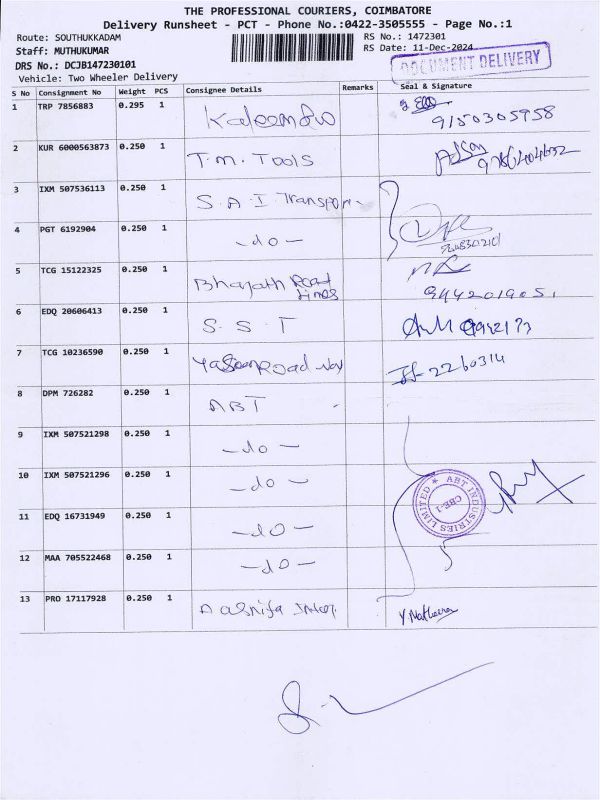 THE PROFESSIONAL COURIERS, COIMBATORE
Delivery Runsheet - PCT - Phone No.:0422-3505555 - Page No.:1
Route: SOUTHUKKADAM
RS No.: 1472301
Staff: MUTHUKUMAR
RS Date: 11-Dec-2024
DRS No.: DCJB147230101
DOCUMENT DELIVERY
Vehicle: Two Wheeler Delivery
S No Consignment No Weight PCS Consignee Details Remarks Seal & Signature
1 TRP 7856883 0.295 1 9150305958
2 KUR 6000563873 0.250 1 T.M. Tools
3 IXM 507536113 0.250 1 S.A.I Transport
4 PGT 6192904 0.250 1 -do-
5 TCG 15122325 0.250 1 Bharath Road Lines 9442019051
6 EDQ 20606413 0.250 1 S.S.T
7 TCG 10236590 0.250 1 2260314
8 DPM 726282 0.250 1 ABT
9 IXM 507521298 0.250 1 -do-
10 IXM 507521296 0.250 1 -do-
ABT INDUSTRIES LIMITED CBE-1
11 EDQ 16731949 0.250 1 -do-
12 MAA 705522468 0.250 1 -do-
13 PRO 17117928 0.250 1